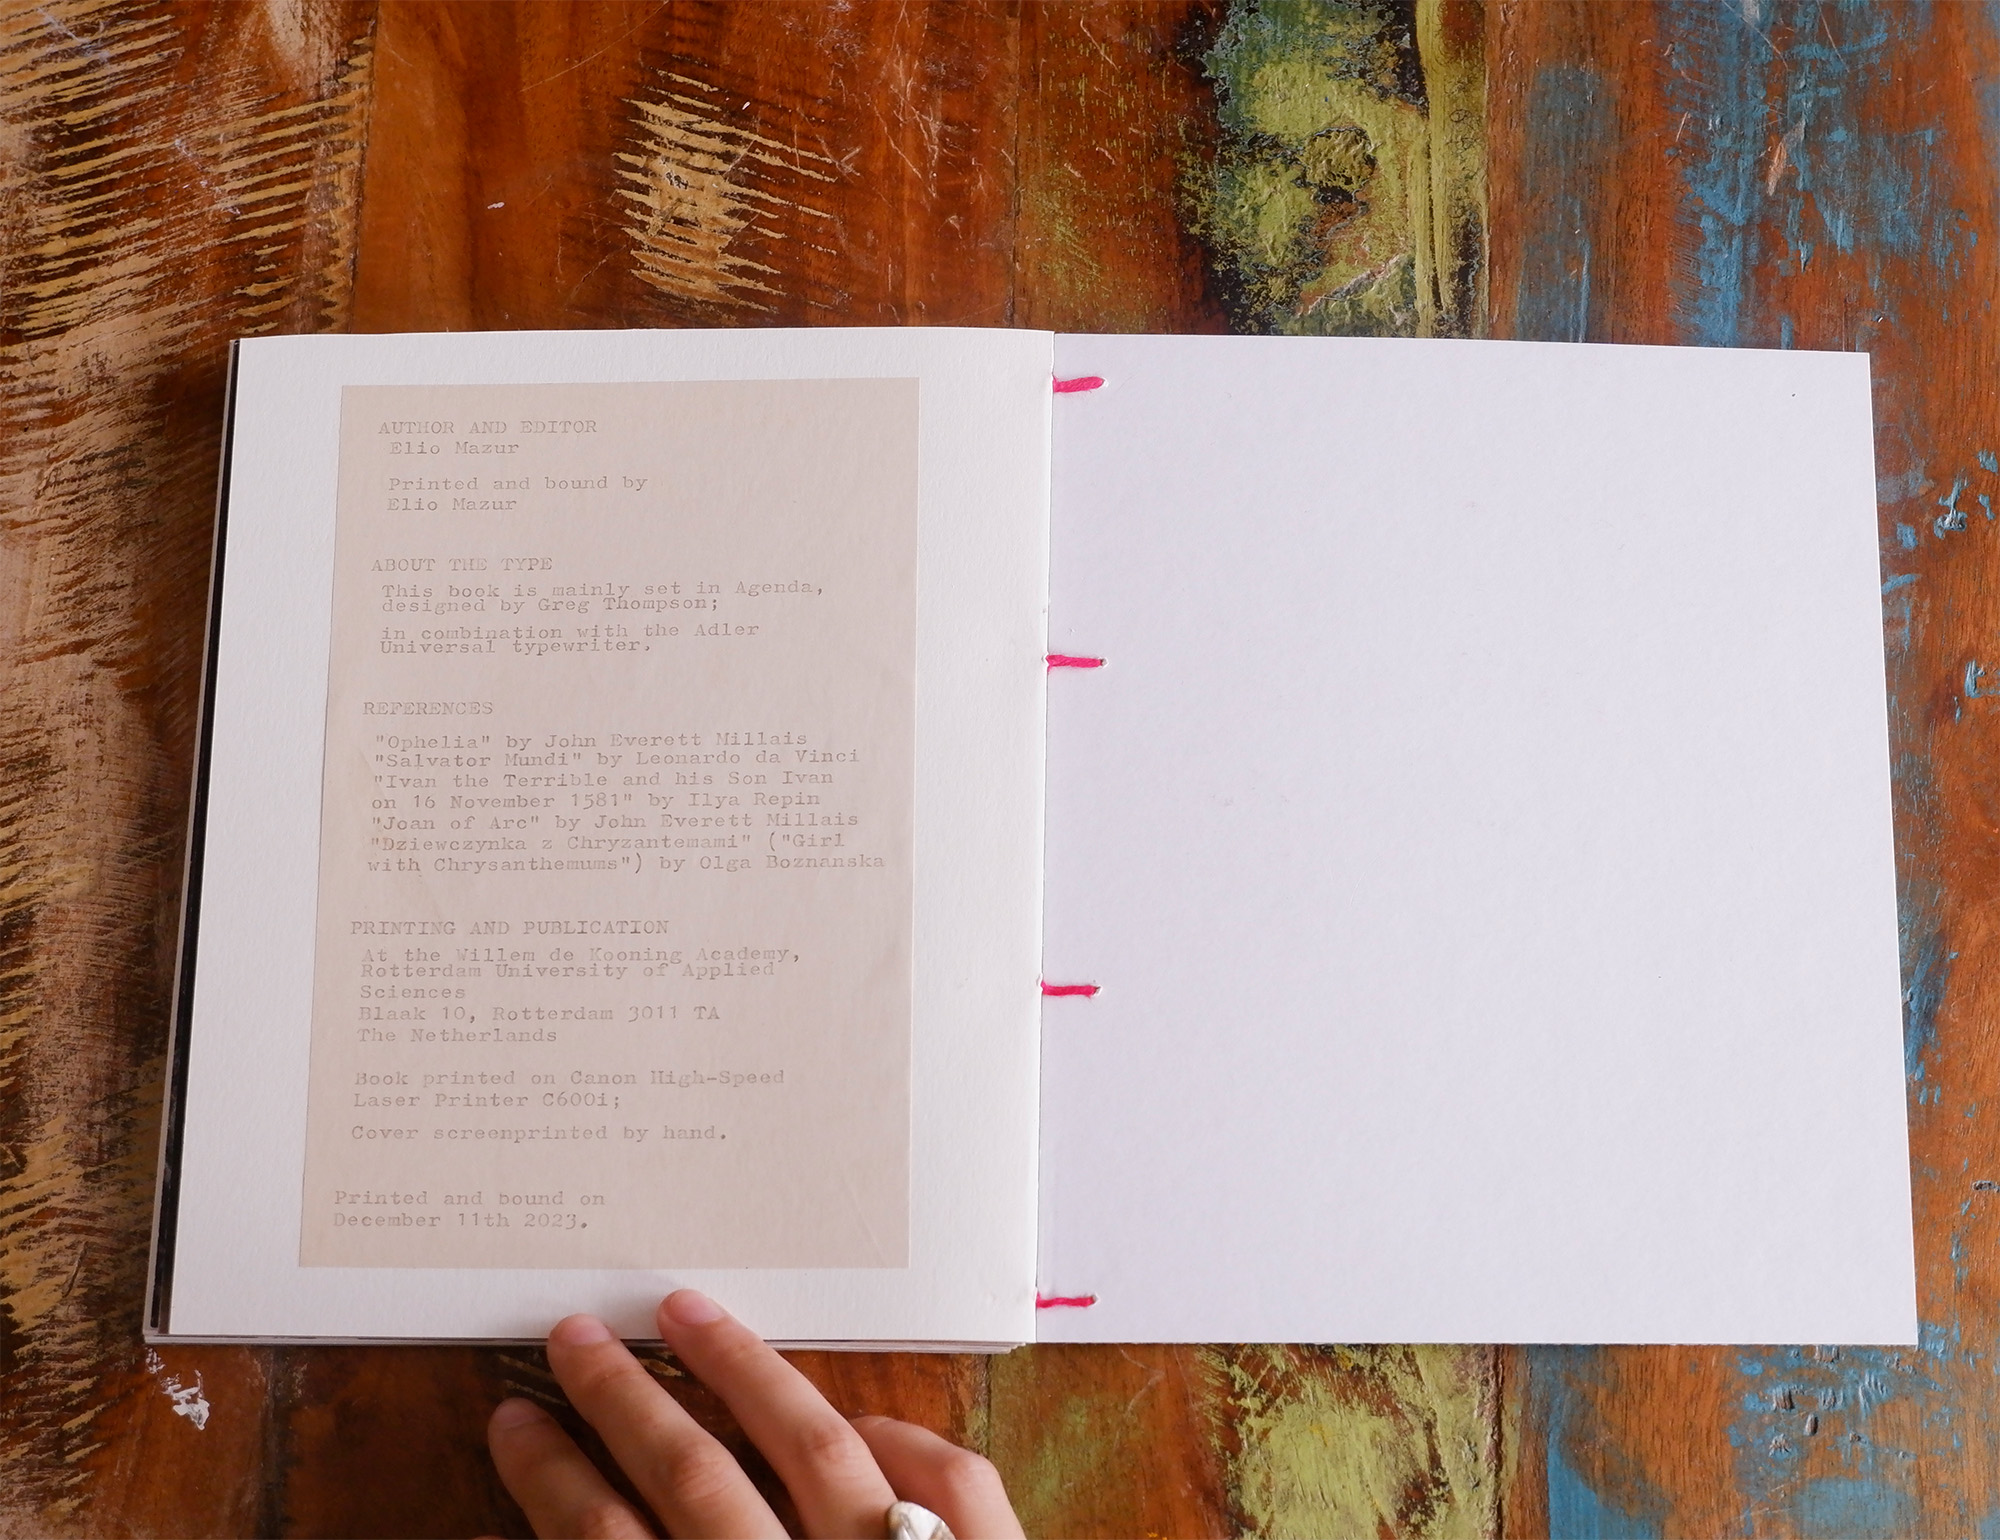 AUTHOR AND EDITOR
Elio Mazur
Printed and bound by
Elio Mazur
ABOUT THE TYPE
This book is mainly set in Agenda,
designed by Greg Thompson;
in combination with the Adler
Universal typewriter.
REFERENCES
"Ophelia" by John Everett Millais
"Salvator Mundi" by Leonardo da Vinci
"Ivan the Terrible and his Son Ivan
on 16 November 1581" by Ilya Repin
"Joan of Arc" by John Everett Millais
"Dziewczynka z Chryzantemami" ("Girl
with Chrysanthemums") by Olga Boznanska
PRINTING AND PUBLICATION
At the Willem de Kooning Academy,
Rotterdam University of Applied
Sciences
Blaak 10, Rotterdam 3011 TA
The Netherlands
Book printed on Canon High-Speed
Laser Printer C600i;
Cover screenprinted by hand.
Printed and bound on
December 11th 2023.